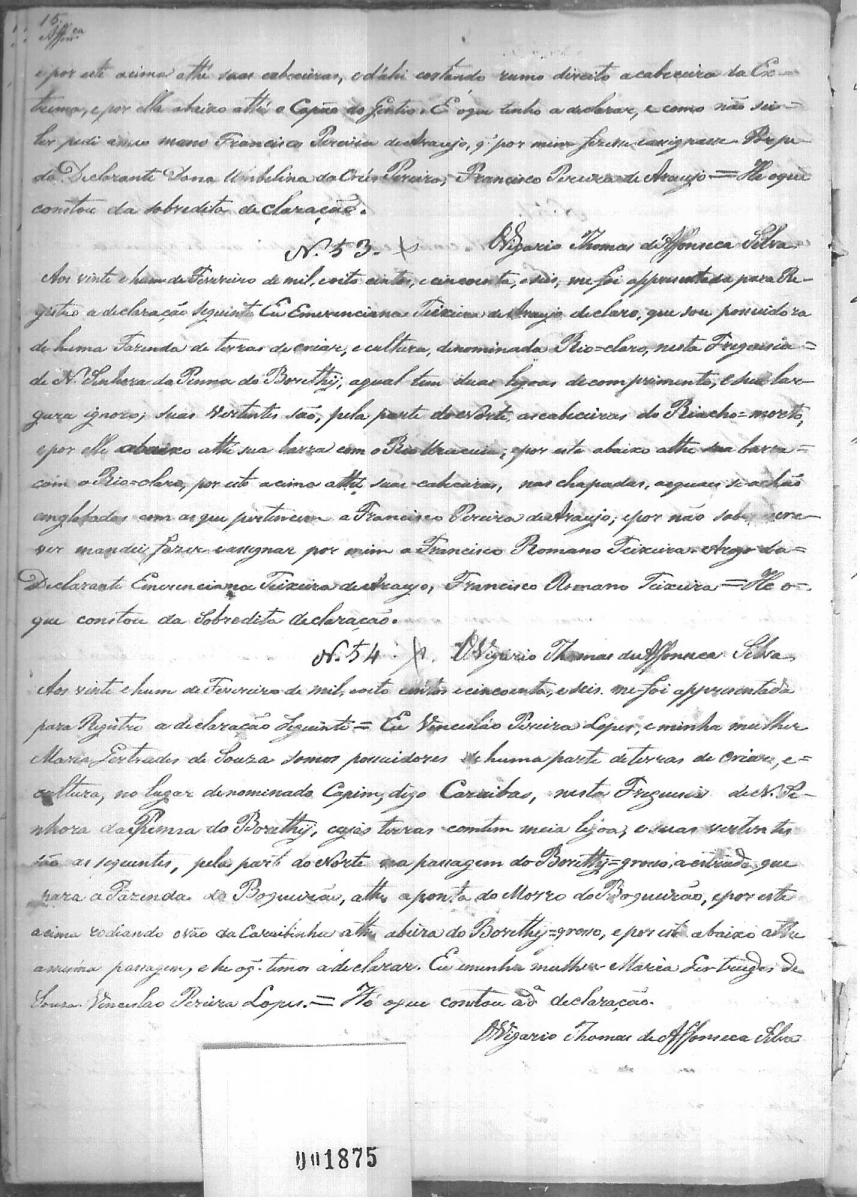 15.
Affonca
e por este acima athé suas cabeceiras, e d'ahi costeando rumo direito a cabeceira da Ex=
trema, e por ella abaixo athé o Capão do Gentio. É o que tenho a declarar, e como não sei
ler pedi a meo mano Francisco Pereira de Araujo, q' por mim fizesse e assignasse
da Declarante Dona Umbelina da Crús Pereira, Francisco Pereira de Araujo = He o que
constou da sobredita declaração.
Nº 53. O Vigario Thomas de Affonseca Silva
Aos vinte e hum de Fevereiro de mil, oito centos, e cincoenta, e seis, me foi appresentada para Re-
gistro a declaração seguinte Eu Emerenciana Teixeira de Araujo declaro, que sou possuidora
de huma Fazenda de terras de criar, e cultura, denominada Rio=claro, nesta Freguisia=
de Nª Senhora da Penna do Borethy, a qual tem duas legoas de comprimento, e sua lar-
gura ignoro; suas vertentes são, pela parte do Norte, as cabeceiras do Riacho=morto,
e por elle abaixo athé sua barra com o Rio Uracuia; e por este abaixo athe sua barra=
com o Rio=claro, por este acima athé suas cabeceiras, nas chapadas, as quaes se achão
englobadas com as que pertencem a Francisco Pereira de Araujo; e por não saber escre-
ver mandei fazer e assignar por mim a Francisco Romano Teixeira. Arogo da=
Declarante Emerenciana Teixeira de Araujo, Francisco Romano Teixeira = He o-
que constou da sobredita declaração.
Nº 54. O Vigario Thomas de Affonseca Silva
Aos vinte e hum de Fevereiro de mil, oito centos e cincoenta, e seis me foi appresentada
para Registro a declaração seguinte = Eu Vencislão Pereira Lopes, e minha mulher
Maria Gertrudes de Souza somos possuidores de huma parte de terras de criar, e=
cultura, no lugar denominado Capim, digo Caraibas, nesta Freguesia de Nª Se-
nhora da Penna do Borethy, cujas terras contem meia legoa; e suas vertentes
são as seguintes, pela parte do Norte na passagem do Borethy=grosso, a estrada que
para a Fazenda do Boqueirão, athe a ponta do Morro do Boqueirão, e por este
acima rodiando o vão da Caraibinha athe abeira do Borethy=grosso, e por este abaixo athe
a mesma passagem, e he o q' temos a declarar. Eu e minha mulher Maria Gertrudes de
Souza Vencislao Pereira Lopes. = Hé o que constou a dª declaração.
O Vigario Thomas de Affonseca Silva
001875